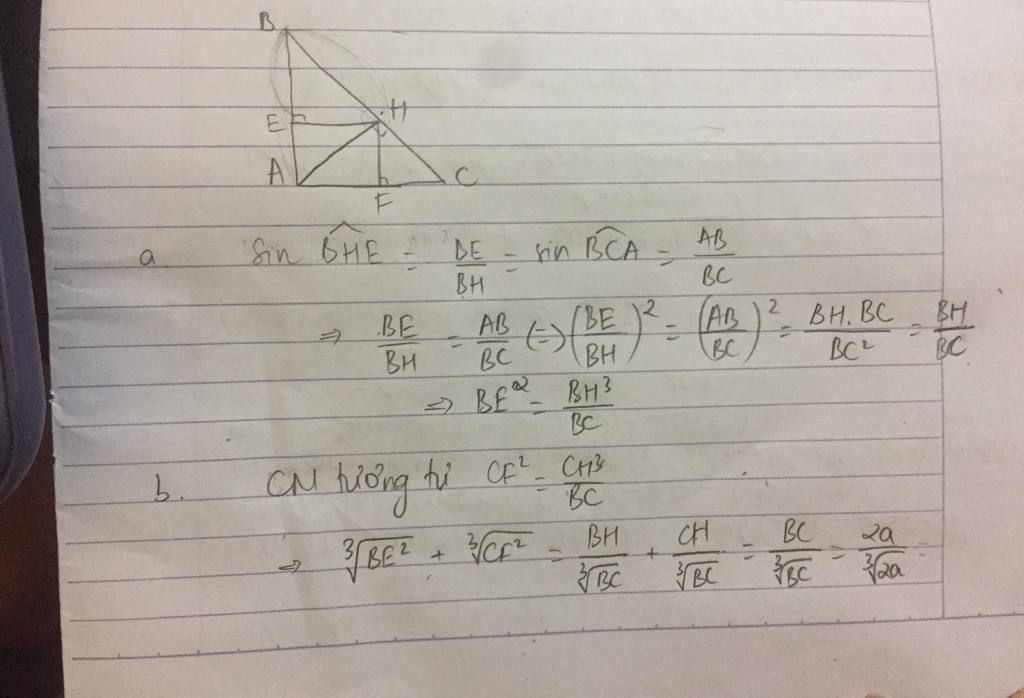 B
E
H
A
C
F
a sin \widehat{BHE} = \frac{BE}{BH} = sin \widehat{BCA} = \frac{AB}{BC}
⇒ \frac{BE}{BH} = \frac{AB}{BC} (=) \left(\frac{BE}{BH}\right)^2 = \left(\frac{AB}{BC}\right)^2 = \frac{BH.BC}{BC^2} = \frac{BH}{BC}
⇒ BE^2 = \frac{BH^3}{BC}
b. CM tương tự CF^2 = \frac{CH^3}{BC}
⇒ \sqrt[3]{BE^2} + \sqrt[3]{CF^2} = \frac{BH}{\sqrt[3]{BC}} + \frac{CH}{\sqrt[3]{BC}} = \frac{BC}{\sqrt[3]{BC}} = \frac{2a}{\sqrt[3]{2a}} =